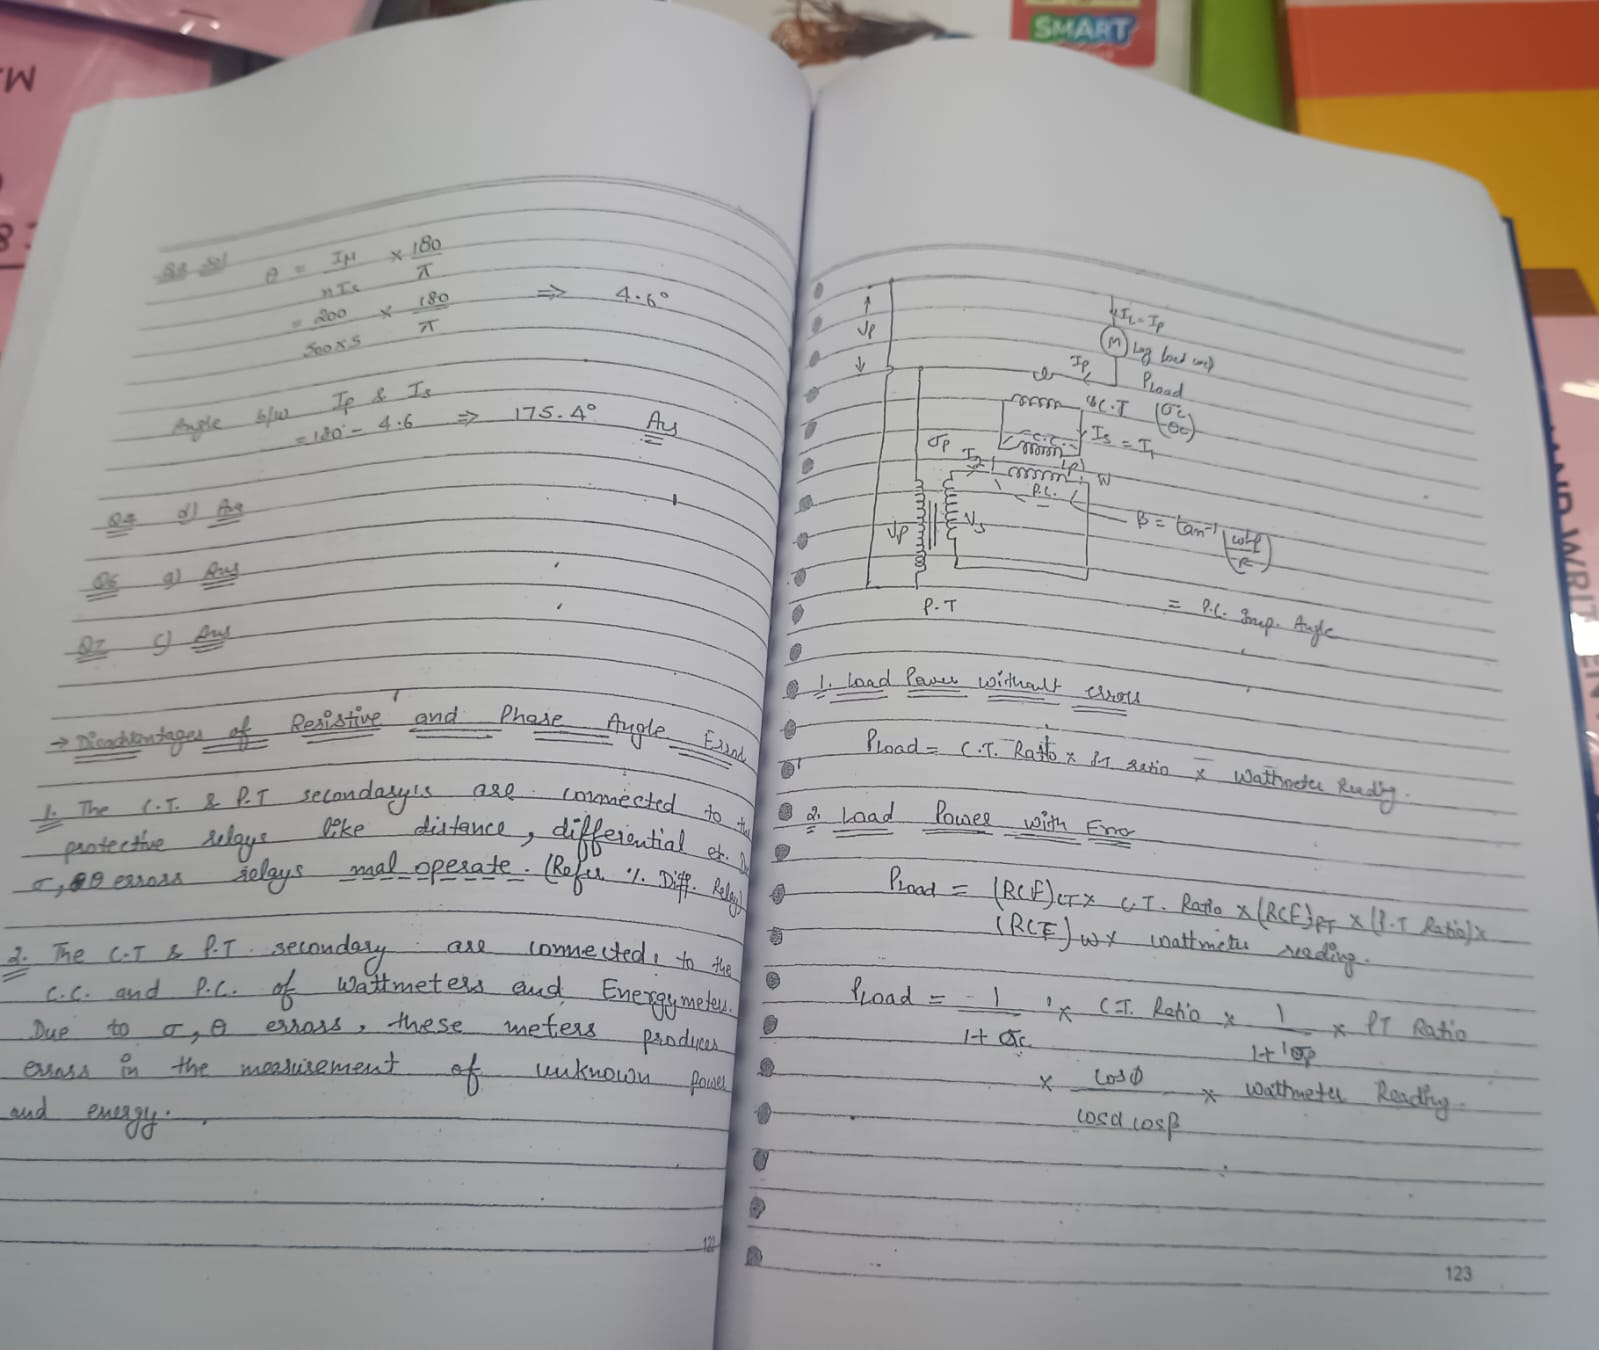 SMART
Q3 Sol
θ = Iμ/nIs × 180/π
= 200/500×5 × 180/π ⇒ 4.6°
Angle b/w Ip & Is
= 180° - 4.6 ⇒ 175.4° Ans
Q4 d) Ans
Q6 a) Ans
Q7 c) Ans
→ Disadvantages of Resistive and Phase Angle Error
1. The C.T. & P.T secondary's are connected to the
protective relays like distance, differential et.
σ, θ errors relays mal operate. (Refer % Diff. Relay)
2. The C.T & P.T. secondary are connected to the
C.C. and P.C. of Wattmeters and Energymeters.
Due to σ, θ errors, these meters produces
errors in the measurement of unknown power
and energy.
Vp
IL = Ip
M Lag load
Ip
PLoad
C.T (σc/θc)
C.C.
Is = I1
σp I2 W
P.C.
Vp Vs
β = tan⁻¹ (ωLp/R)
P.T
= P.C. Imp. Angle
1. Load Power without errors
PLoad = C.T. Ratio × PT ratio × Wattmeter Reading.
2. Load Power with Error
PLoad = (RCF)CT × C.T. Ratio × (RCF)PT × (P.T Ratio) ×
(RCF)W × Wattmeter reading.
PLoad = 1/1+σc × C.T. Ratio × 1/1+σp × PT Ratio
× cosϕ/cosα cosβ × Wattmeter Reading.
123